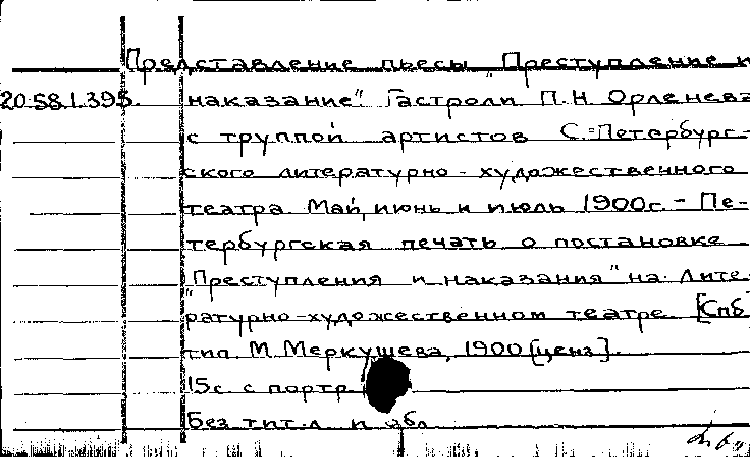 Представление пьесы „Преступление и
20.58.1.395. наказание“. Гастроли П.Н. Орленева
с труппой артистов С.=Петербург-
ского литературно-художественного
театра. Май, июнь и июль 1900г. - Пе-
тербургская печать о постановке
„Преступления и наказания“ на Лите-
ратурно-художественном театре. [Спб
тип. М. Меркушева, 1900 [ценз].
15с. с портр.
Без тит. л. и обл.